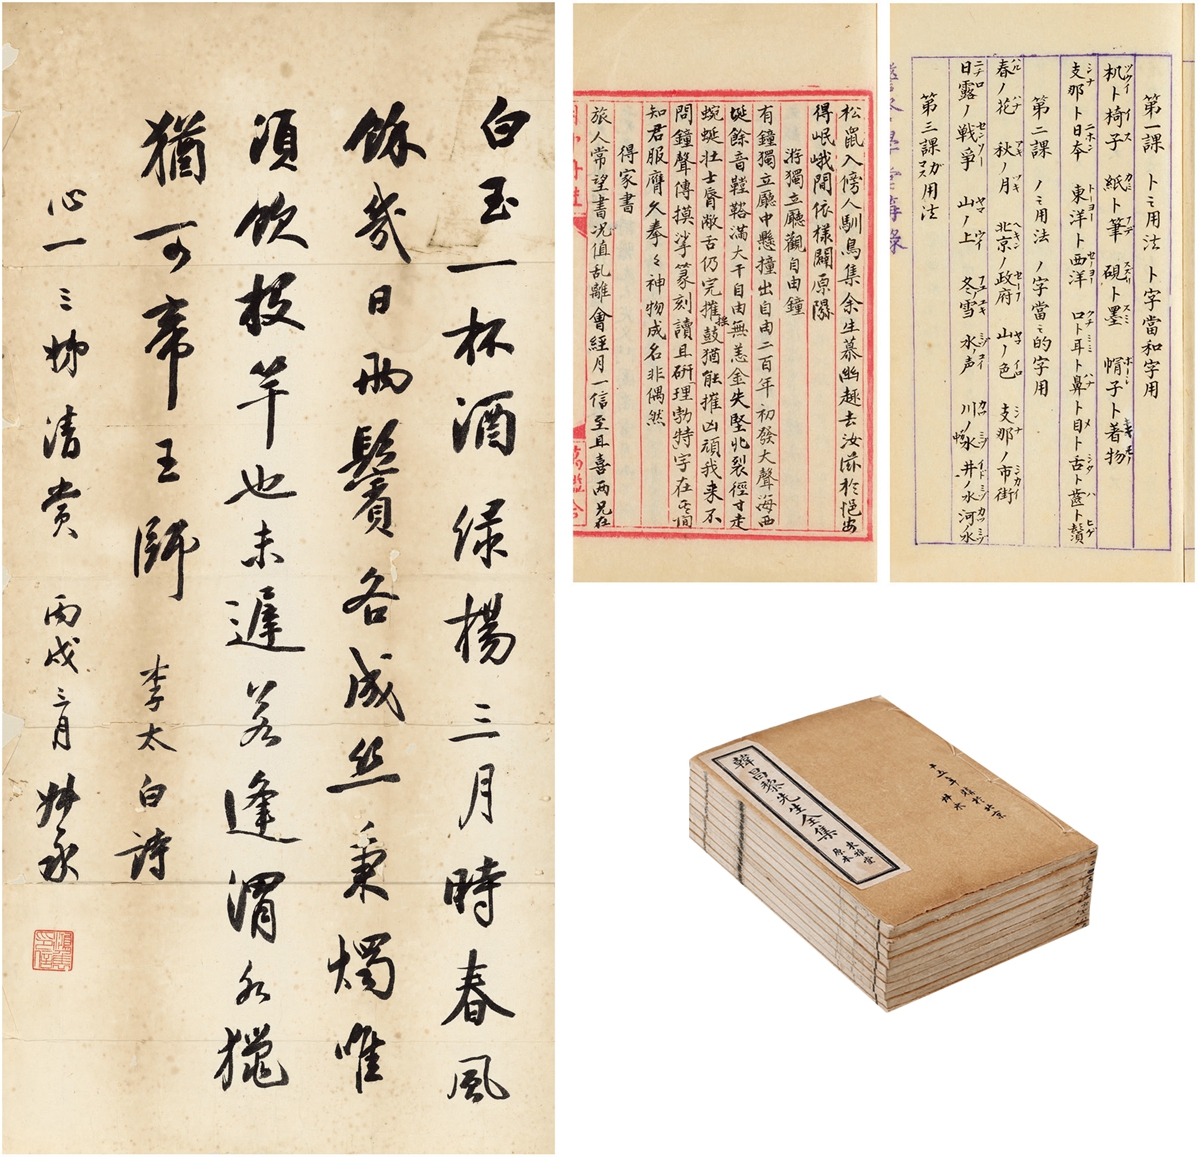 白玉一杯酒绿楊三月時春風
餘幾日兩鬢各成丝秉燭唯
須飲投竿也未遲若逢渭水獵
猶可帝王師 李太白詩
心一三姊清賞 丙戌三月
松鼠入傍人馴鳥集余生慕幽趣去汝滋於悒安
得岷峨間依樣闢原隰
游獨立廳觀自由鐘
有鐘獨立廳中懸撞出自由二百年初發大聲海西
埏餘音鞺鞳滿大千自由無恙金失堅兆裂徑寸走
蜿蜒壯士脣敝舌仍完摧鼓猶能摧凶頑我来不
問鐘聲傳摸挲篆刻讀且研理勃特字在其間
知君服膺久拳々神物成名非偶然
得家書
旅人常望書况值乱離會經月一信至且喜两兄在
第一課 トミ用法 ト字當和字用
机ト椅子 紙ト筆 硯ト墨 帽子ト着物
支那ト日本 東洋ト西洋 口ト耳ト鼻ト目ト舌ト齒ト鬚
第二課 ノミ用法 ノ字當ミ的字用
春ノ花 秋ノ月 北京ノ政府 山ノ色 支那ノ市街
日露ノ戦争 山ノ上 冬ノ雪 水ノ声 川ノ水 井ノ水 河ノ水
第三課 ガ用法
韓昌黎先生全集
東雅堂
原本
十五年 於北京